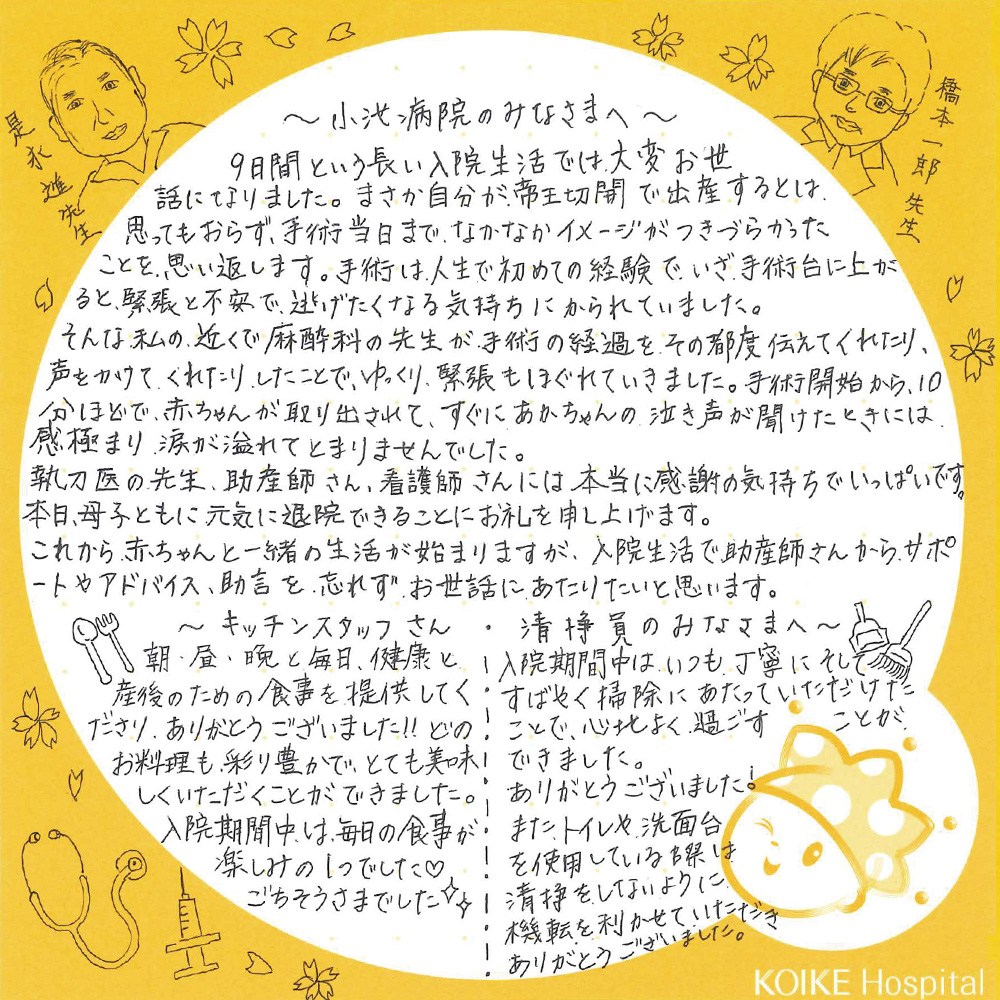 是永進先生
橋本一郎先生
～小池病院のみなさまへ～
9日間という長い入院生活では、大変お世
話になりました。まさか自分が、帝王切開で出産するとは、
思ってもおらず、手術当日まで、なかなかイメージがつきづらかった
ことを、思い返します。手術は、人生で初めての経験で、いざ、手術台に上が
ると、緊張と不安で、逃げたくなる気持ちにかられていました。
そんな私の、近くで麻酔科の先生が、手術の経過を、その都度伝えてくれたり、
声をかけて、くれたり、したことで、ゆっくり、緊張もほぐれていきました。手術開始から、10
分ほどで、赤ちゃんが取り出されて、すぐにあかちゃんの泣き声が聞けたときには、
感極まり、涙が溢れてとまりませんでした。
執刀医の先生、助産師さん、看護師さんには、本当に感謝の気持ちでいっぱいです。
本日、母子ともに元気に退院できることにお礼を申し上げます。
これから、赤ちゃんと一緒の生活が始まりますが、入院生活で助産師さんから、サポ
ートやアドバイス、助言を、忘れず、お世話にあたりたいと思います。
～キッチンスタッフさん
朝・昼・晩と毎日、健康と、
産後のための食事を提供してく
ださり、ありがとうございました!!どの
お料理も、彩り豊かで、とても美味
しくいただくことができました。
入院期間中は、毎日の食事が
楽しみの1つでした♡
ごちそうさまでした✨
・清掃員のみなさまへ～
入院期間中は、いつも、丁寧にそして
すばやく掃除にあたっていただけた
ことで、心地よく、過ごす
ことが、
できました。
ありがとうございました!
また、トイレや、洗面台
を使用している際は
清掃をしないように、
機転を利かせていただき
ありがとうございました。
KOIKE Hospital